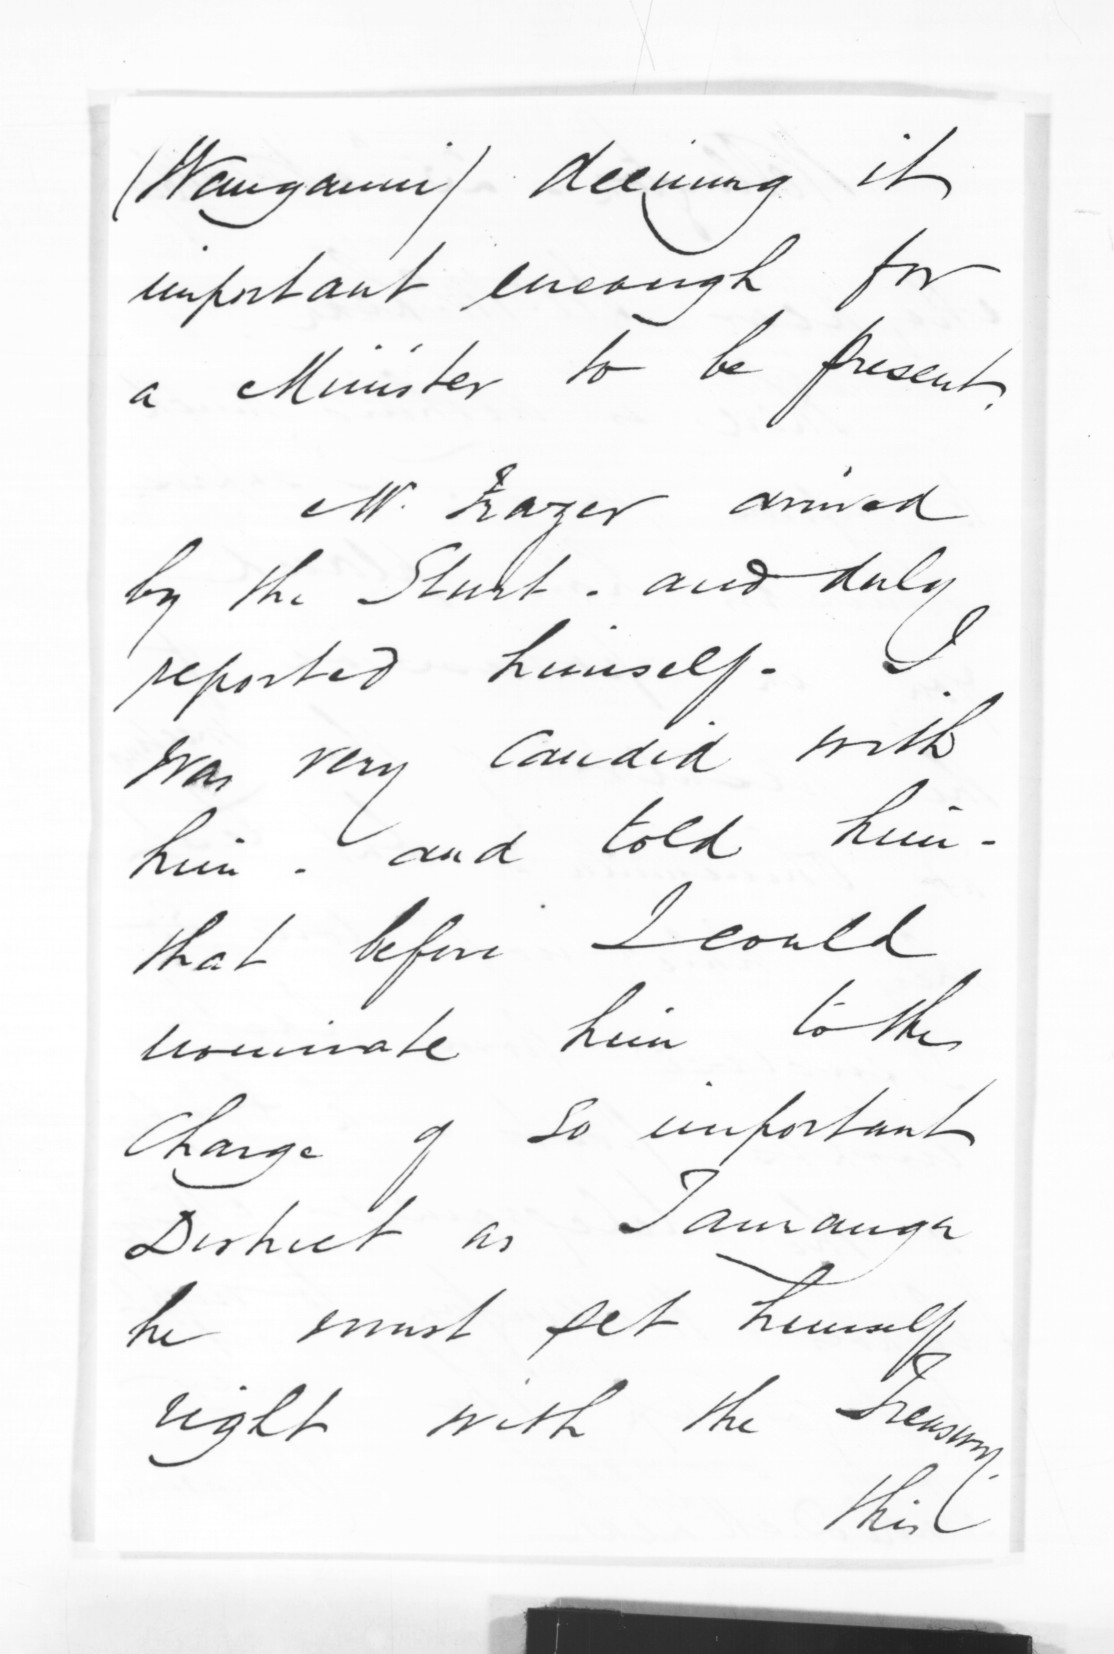 (Wanganui) deeming it
important enough for
a Minister to be present.
Mr. Frazer arrived
by the Sturt. and duly
reported himself. I
was very candid with
him. and told him -
that before I could
nominate him to the
charge of so important
District as Tauranga
he must set himself
right with the Treasury.
this